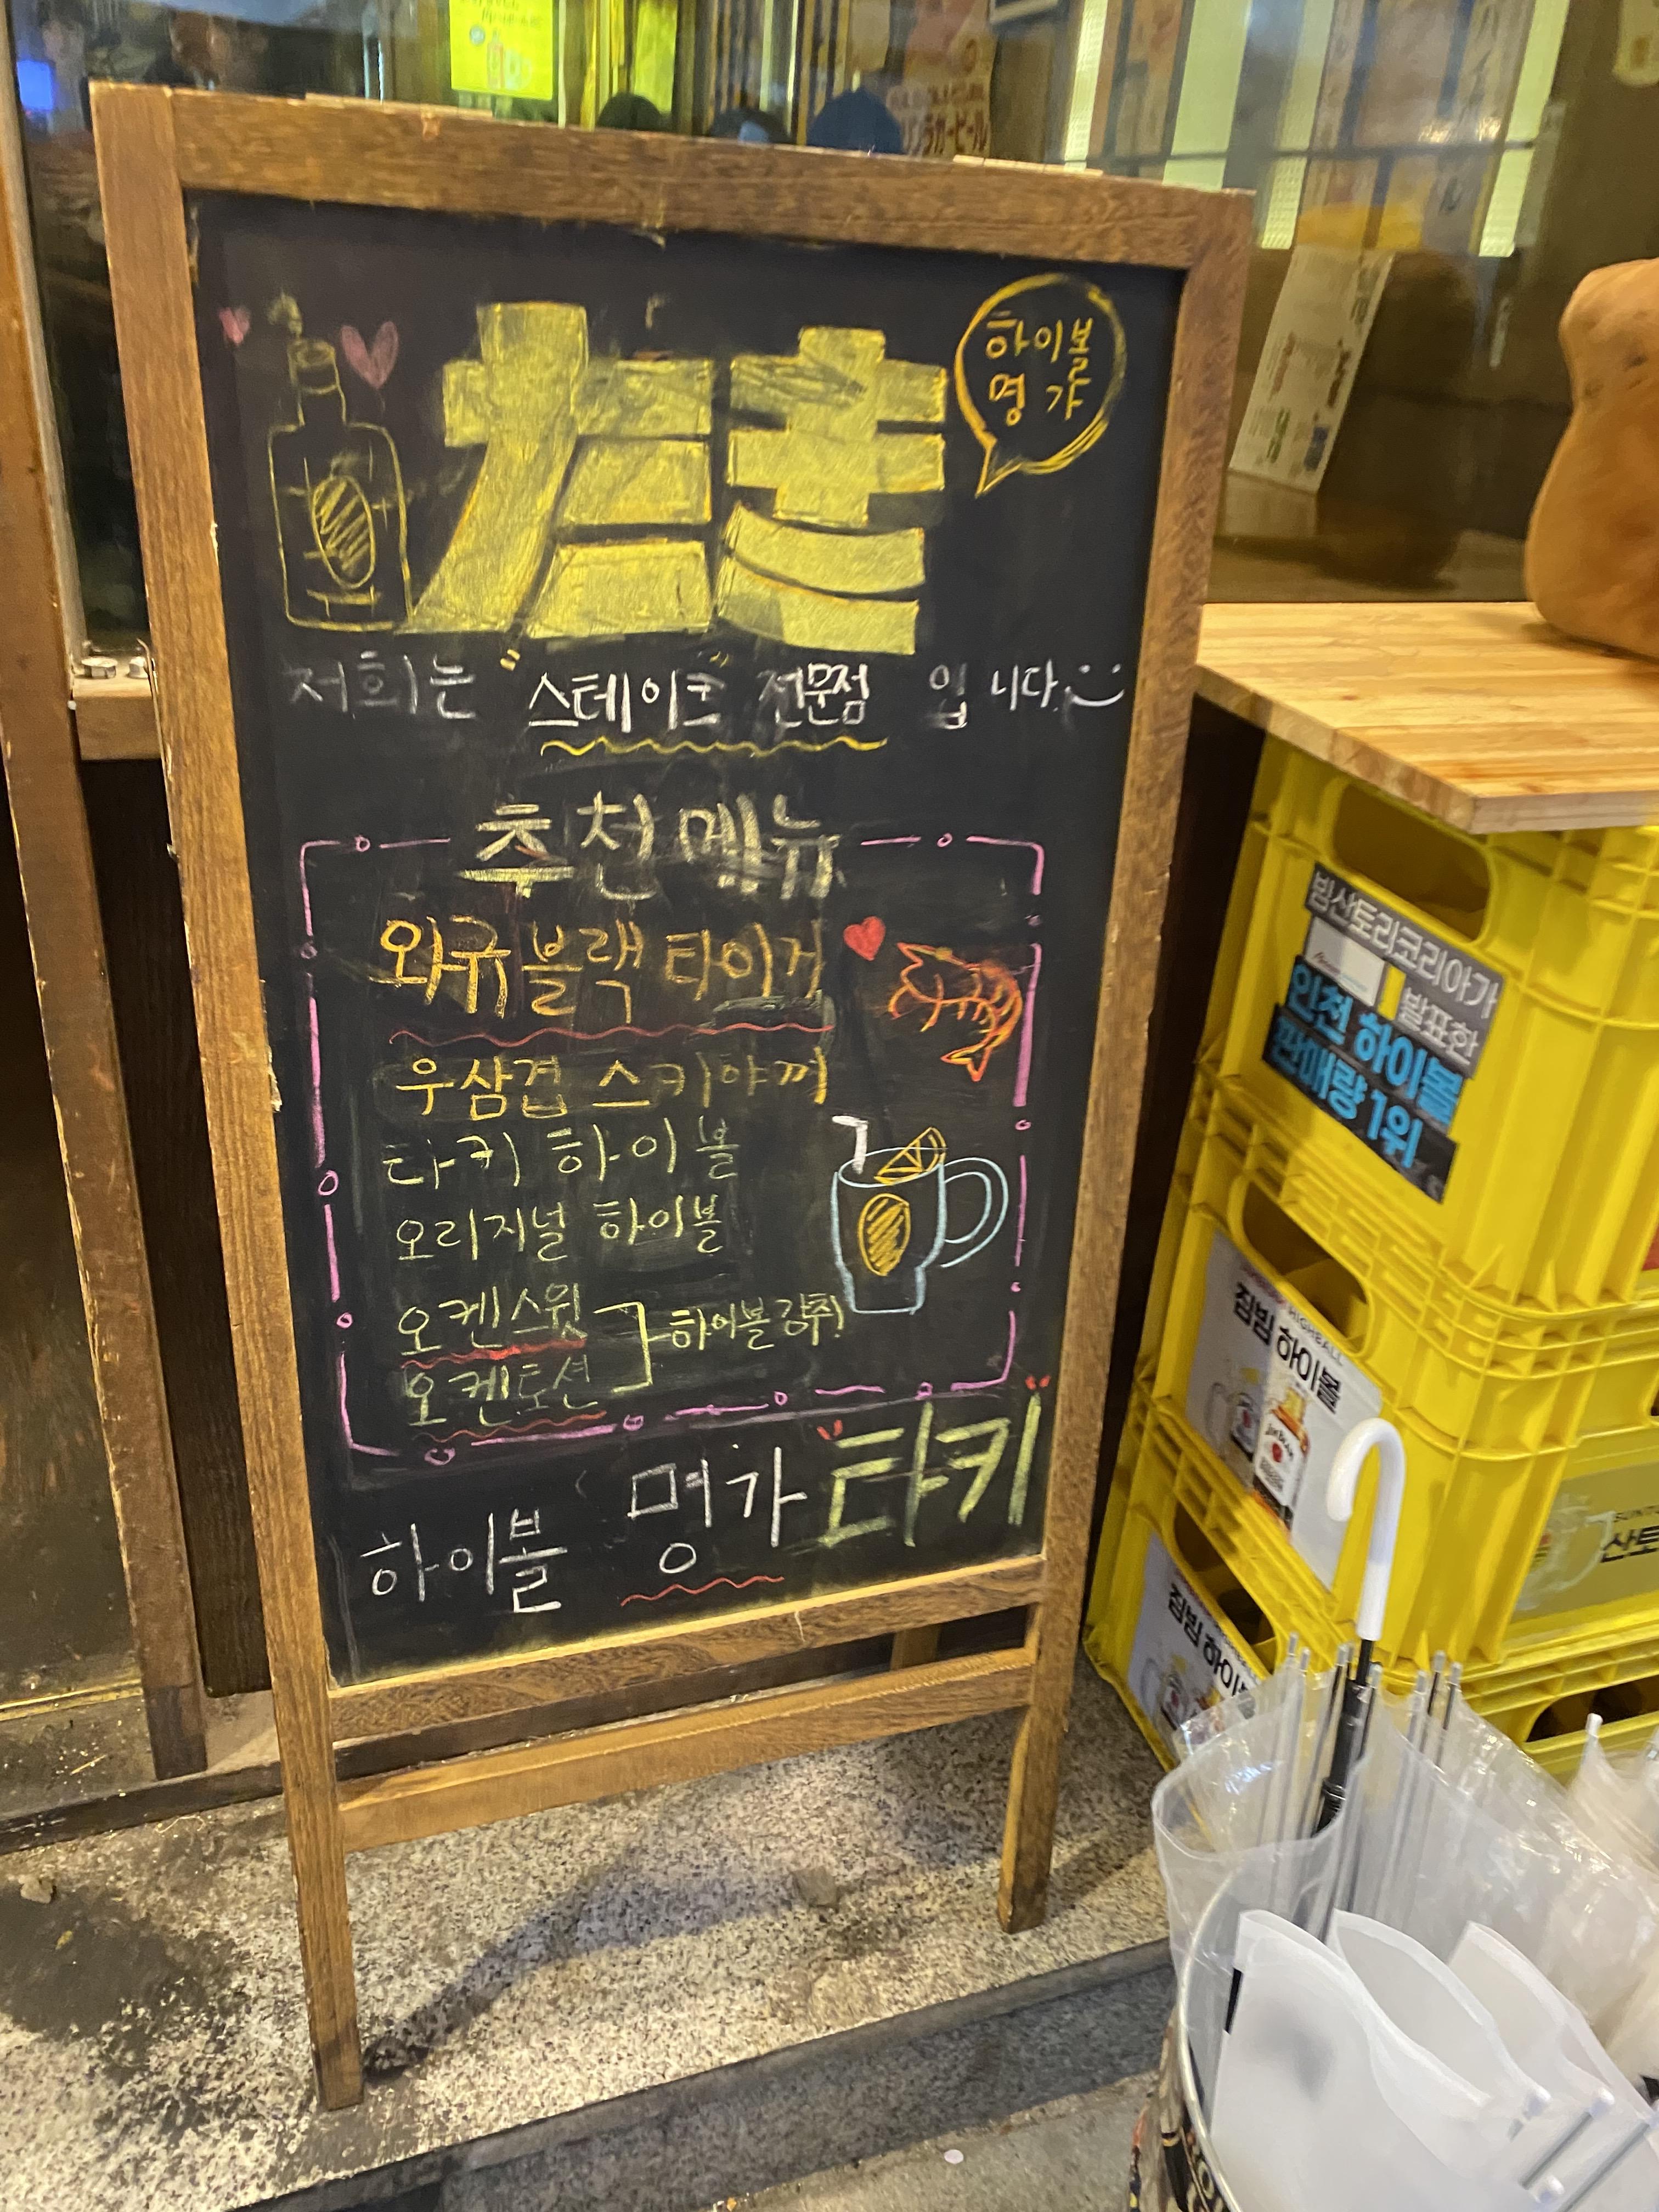 たき
하이볼
명가
저희는 스테이크 전문점 입니다
추천메뉴
와규블랙 타이거
우삼겹 스키야끼
타키 하이볼
오리지널 하이볼
오켄스윗
오켄토션
하이볼 강추!
하이볼 명가 타키
빔산토리코리아가
발표한
인천 하이볼
판매량 1위
HIGHBALL
짐빔 하이볼
JIM BEAM
짐빔 하이볼